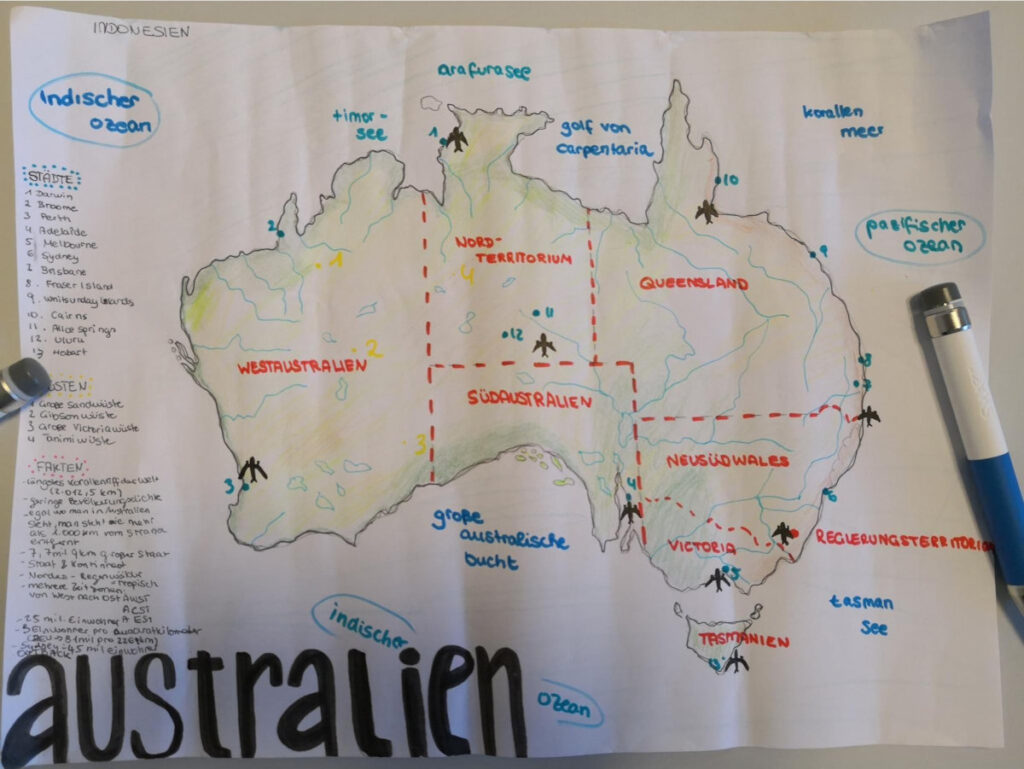 INDONESIEN
Indischer
ozean
arafurasee
timor-
see
golf von
carpentaria
korallen
meer
pasifischer
ozean
STÄDTE
1 Darwin
2 Broome
3 Perth
4 Adelaide
5 Melbourne
6 Sydney
7 Brisbane
8. Fraser Island
9. Whitsunday Islands
10. Cairns
11. Alice Springs
12. Uluru
13 Hobart
1
2
10
9
NORD-
TERRITORIUM
QUEENSLAND
1
4
11
12
2
WESTAUSTRALIEN
SÜDAUSTRALIEN
8
7
NEUSÜDWALES
3
3
4
6
VICTORIA
REGIERUNGSTERRITORIUM
5
TASMANIEN
ÜSTEN
1 Große Sandwüste
2 Gibsonwüste
3 Große Victoriawüste
4 Tanimiwüste
FAKTEN
- längstes Korallenriff der Welt
(2.012,5 km)
- geringe Bevölkerungsdichte
- egal wo man in Australien
steht, man steht nie mehr
als 1.000 km vom Strand
entfernt
- 7,7 mil qkm großer Staat
- Staat & Kontinent
- mehrere Zeitzonen
von West nach Ost AWST
ACST
AEST
- 25 mil. Einwohner
- 3 Einwohner pro Quadratkilometer
große
australische
bucht
tasman
see
indischer
ozean
australien